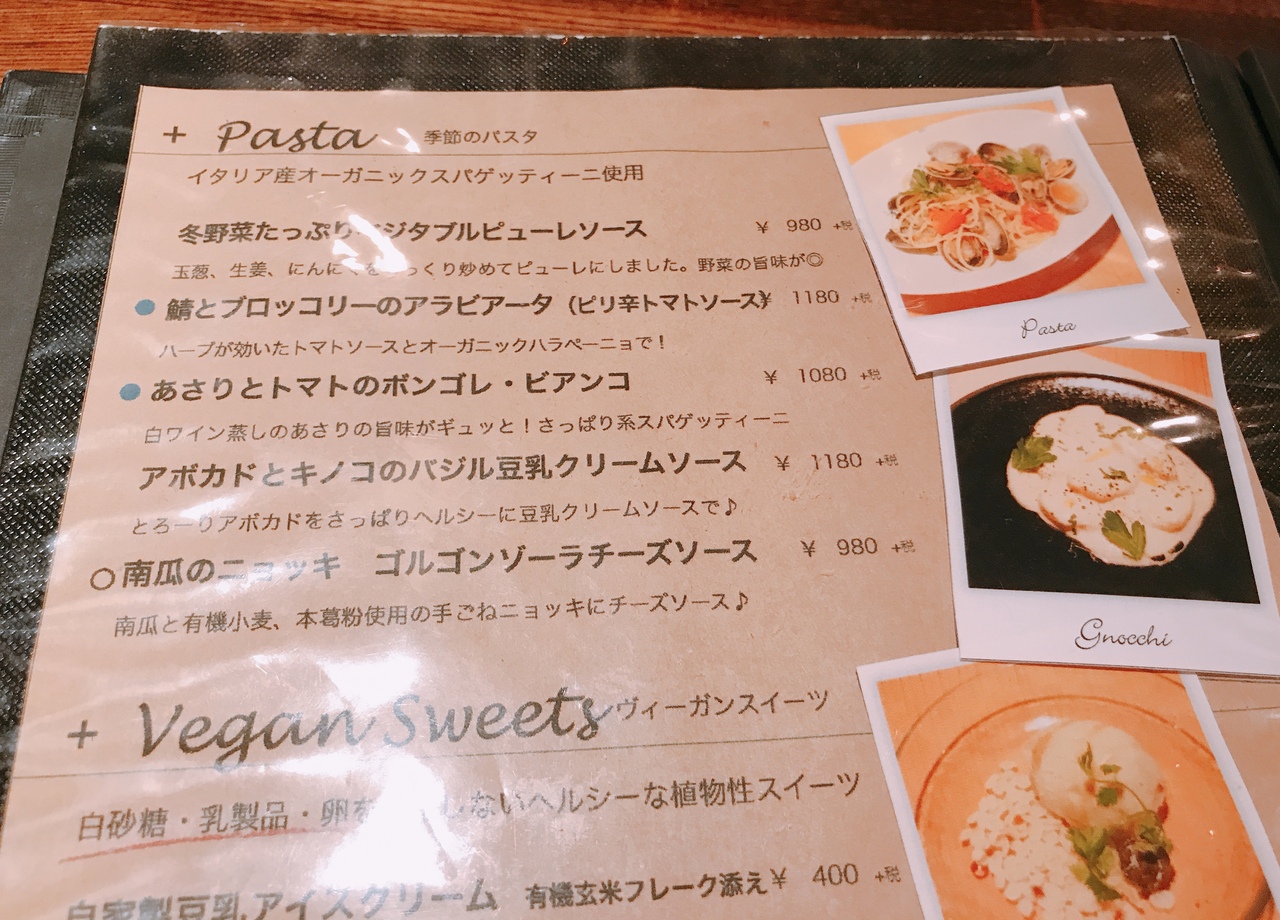 + Pasta 季節のパスタ
イタリア産オーガニックスパゲッティーニ使用
冬野菜たっぷり ジタブルピューレソース ¥ 980 +税
玉葱、生姜、にんに くり炒めてピューレにしました。野菜の旨味が◎
鯖とブロッコリーのアラビアータ (ピリ辛トマトソース) ¥ 1180 +税
ハーブが効いたトマトソースとオーガニックハラペーニョで!
あさりとトマトのボンゴレ・ビアンコ ¥ 1080 +税
白ワイン蒸しのあさりの旨味がギュッと!さっぱり系スパゲッティーニ
アボカドとキノコのバジル豆乳クリームソース ¥ 1180 +税
とろーりアボカドをさっぱりヘルシーに豆乳クリームソースで♪
○南瓜のニョッキ ゴルゴンゾーラチーズソース ¥ 980 +税
南瓜と有機小麦、本葛粉使用の手ごねニョッキにチーズソース♪
+ Vegan Sweets ヴィーガンスイーツ
白砂糖・乳製品・卵を しないヘルシーな植物性スイーツ
自家製豆乳アイスクリーム 有機玄米フレーク添え ¥ 400 +税
Pasta
Gnocchi